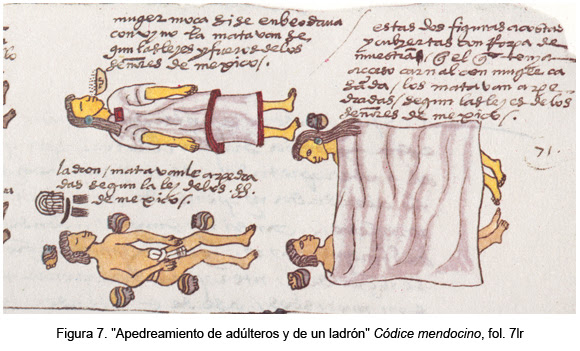 muger moça si se enbeodava
con vino la matavan se
gun las leyes y fueros de los
señores de mexico /.
estas dos figuras acosta
y cubiertas con
muestran / q̃ el q̃ tenya
acceso carnal con muger ca
sada / los matavan a pe
dradas / segun las leyes de los
señores de mexico /.
71.
ladron / matavanle a pedra
das segun la ley de los SS.
de mexico /.
Figura 7. "Apedreamiento de adúlteros y de un ladrón" Códice mendocino, fol. 7lr